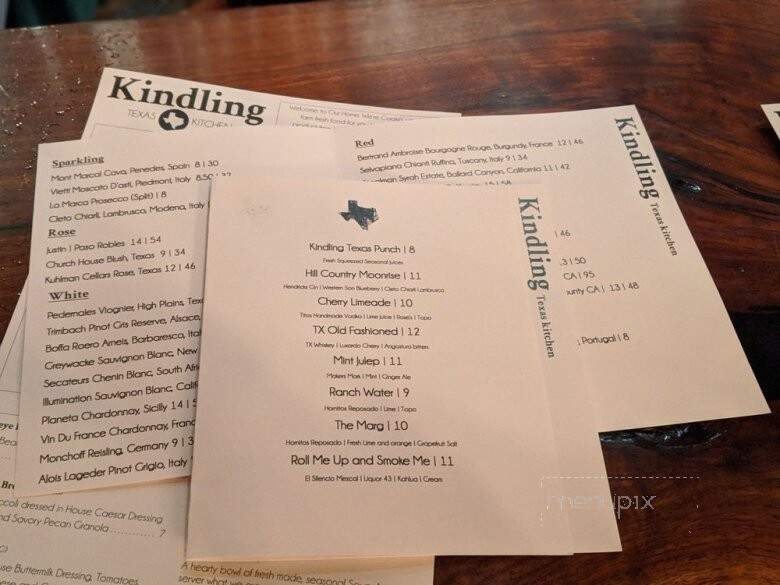 Kindling
TEXAS KITCHEN
Welcome to Our Home. We're Cookin
farm fresh food for you
Sparkling
Mont Marcal Cava, Penedes, Spain 8 | 30
Vietti Moscato D'asti, Piedmont, Italy 8.50 | 32
La Marca Prosecco (Split) | 8
Cleto Chiarli, Lambrusco, Modena, Italy
Rose
Justin | Paso Robles 14 | 54
Church House Blush, Texas 9 | 34
Kuhlman Cellars Rose, Texas 12 | 46
White
Pedernales Viognier, High Plains, Texa
Trimbach Pinot Gris Reserve, Alsace,
Boffa Roero Arneis, Barbaresco, Ital
Greywacke Sauvignon Blanc, New
Secateurs Chenin Blanc, South Afri
Illumination Sauvignon Blanc, Calif
Planeta Chardonnay, Sicily 14 | 5
Vin Du France Chardonnay, Franc
Monchoff Reisling, Germany 9 | 3
Alois Lageder Pinot Grigio, Italy
Red
Bertrand Ambroise Bourgogne Rouge, Burgundy, France 12 | 46
Selvapiana Chianti Ruffina, Tuscany, Italy 9 | 34
Syrah Estate, Ballard Canyon, California 11 | 42
15 | 58
| 46
.50 | 50
CA | 95
ounty CA | 13 | 48
, Portugal | 8
Kindling Texas kitchen
Kindling Texas Punch | 8
Fresh Squeezed Seasonal Juices
Hill Country Moonrise | 11
Hendricks Gin | Western Son Blueberry | Cleto Chiarli Lambrusco
Cherry Limeade | 10
Titos Handmade Vodka | Lime Juice | Rose's | Topo
TX Old Fashioned | 12
TX Whiskey | Luxardo Cherry | Angostura bitters
Mint Julep | 11
Makers Mark | Mint | Ginger Ale
Ranch Water | 9
Hornitos Reposado | Lime | Topo
The Marg | 10
Hornitos Reposado | Fresh Lime and orange | Grapefruit Salt
Roll Me Up and Smoke Me | 11
El Silencio Mezcal | Liquor 43 | Kahlua | Cream
Kindling Texas kitchen
ccoli dressed in House Caesar Dressing
nd Savory Pecan Granola ............ 7
se Buttermilk Dressing, Tomatoes,
A hearty bowl of fresh made, seasonal
server what we
menupix